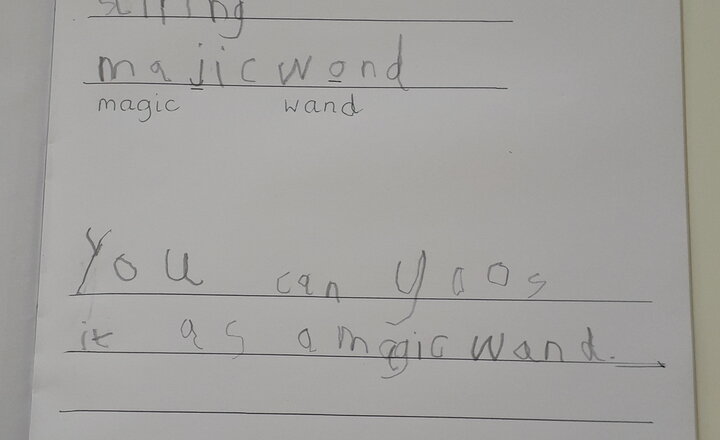 majic wond
magic wand
You can yoos
it as a magic wand.